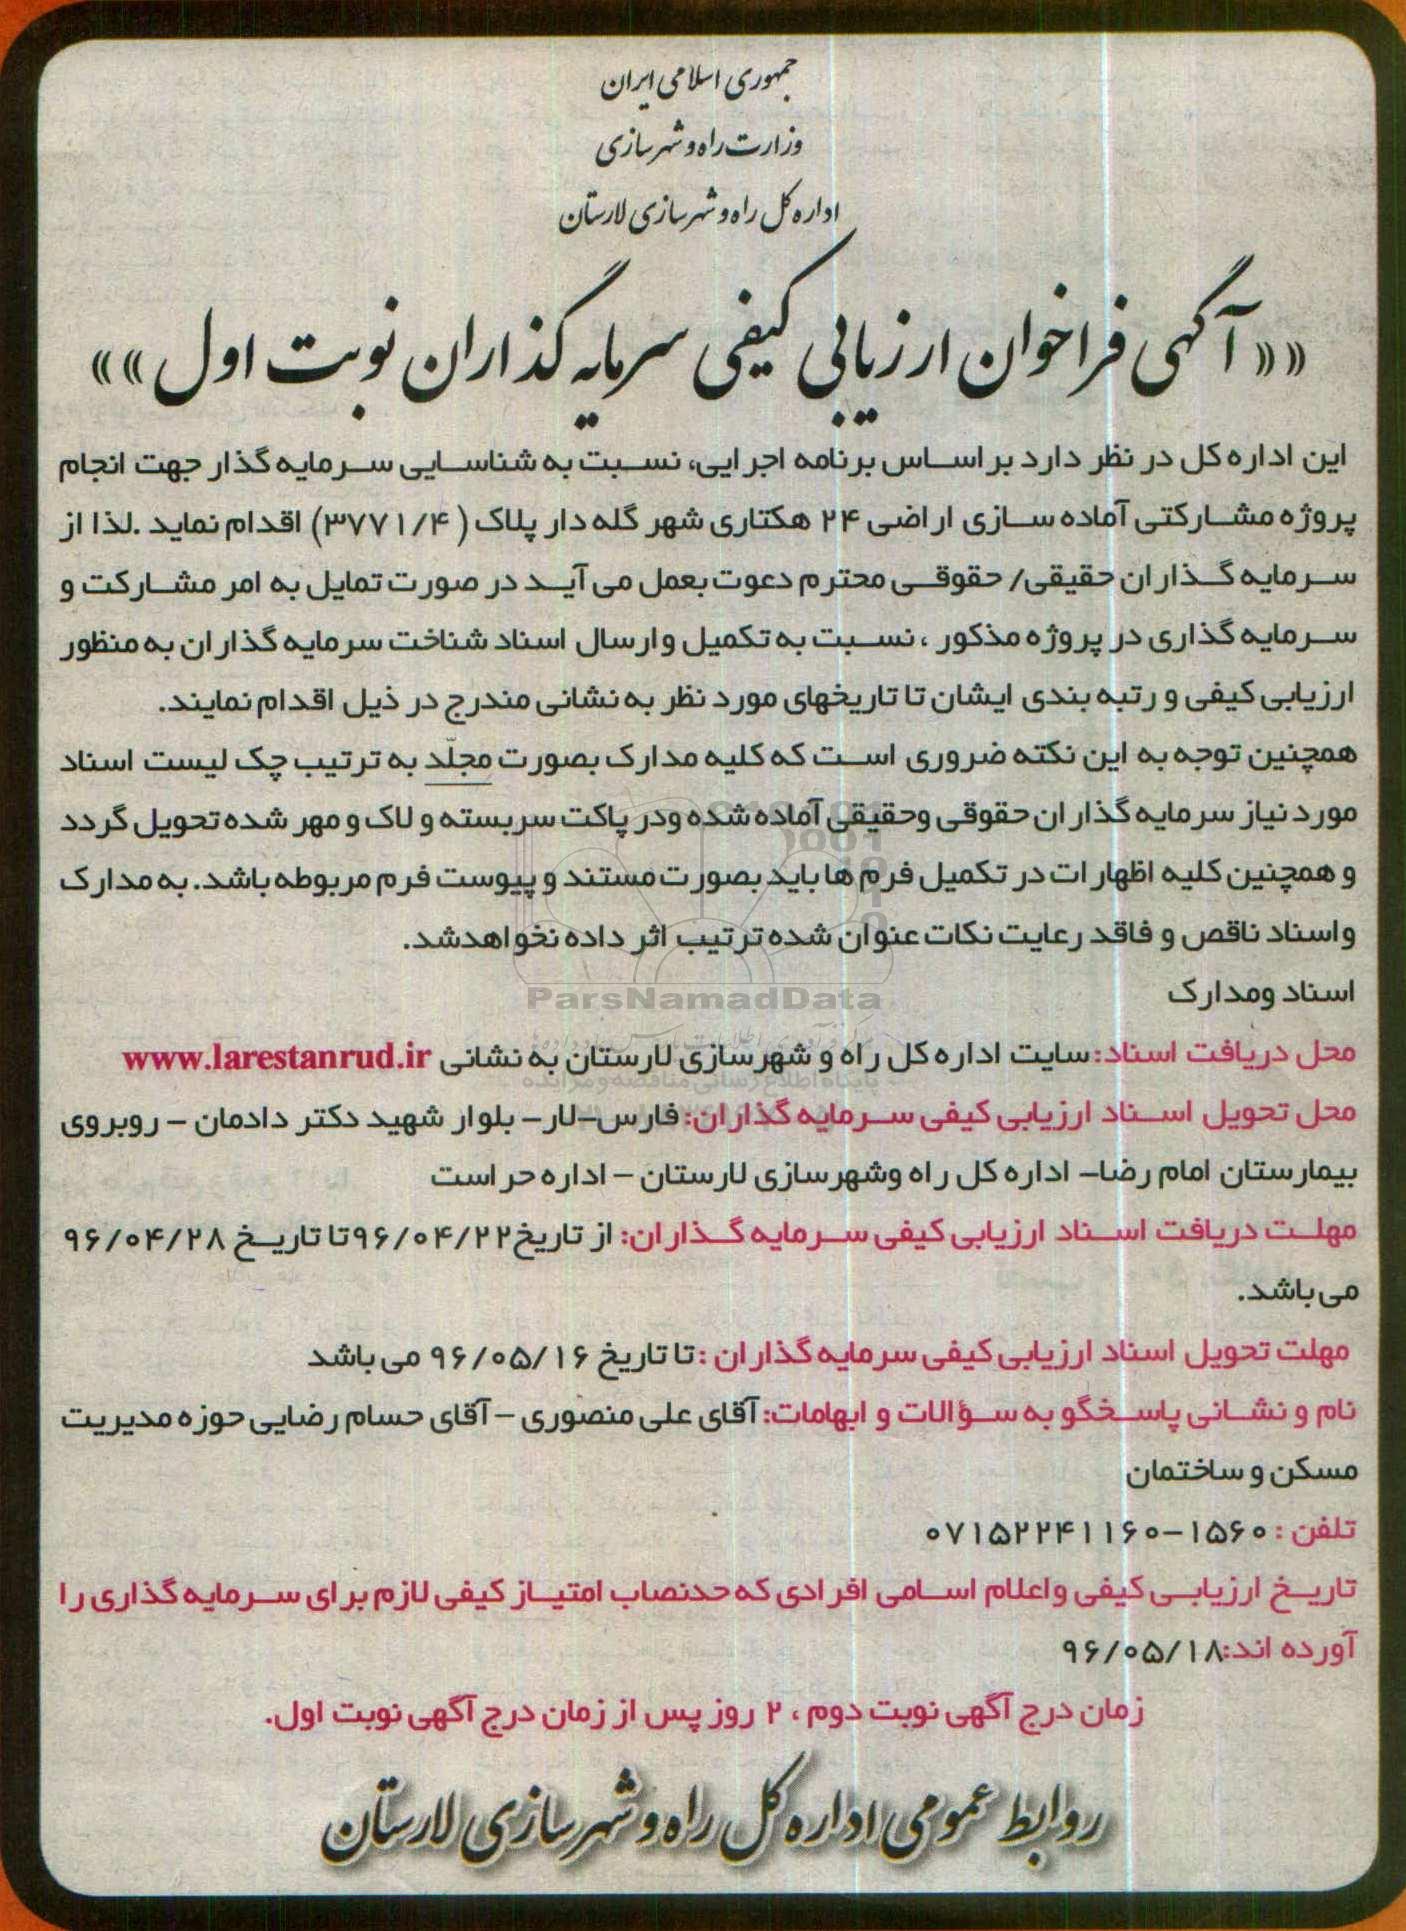 جمهوری اسلامی ایران
وزارت راه و شهرسازی
اداره کل راه و شهرسازی لارستان
«« آگهی فراخوان ارزیابی کیفی سرمایه گذاران نوبت اول »»
این اداره کل در نظر دارد بر اساس برنامه اجرایی، نسبت به شناسایی سرمایه گذار جهت انجام
پروژه مشارکتی آماده سازی اراضی ۲۴ هکتاری شهر گله دار پلاک ( ۳۷۷۱/۴) اقدام نماید .لذا از
سرمایه گذاران حقیقی/ حقوقی محترم دعوت بعمل می آید در صورت تمایل به امر مشارکت و
سرمایه گذاری در پروژه مذکور ، نسبت به تکمیل وارسال اسناد شناخت سرمایه گذاران به منظور
ارزیابی کیفی و رتبه بندی ایشان تا تاریخهای مورد نظر به نشانی مندرج در ذیل اقدام نمایند.
همچنین توجه به این نکته ضروری است که کلیه مدارک بصورت مجلّد به ترتیب چک لیست اسناد
مورد نیاز سرمایه گذاران حقوقی وحقیقی آماده شده ودر پاکت سربسته و لاک و مهر شده تحویل گردد
و همچنین کلیه اظهارات در تکمیل فرم ها باید بصورت مستند و پیوست فرم مربوطه باشد. به مدارک
واسناد ناقص و فاقد رعایت نکات عنوان شده ترتیب اثر داده نخواهدشد.
ParsNamadData
اسناد ومدارک
محل دریافت اسناد: سایت اداره کل راه و شهرسازی لارستان به نشانی www.larestanrud.ir
پایگاه اطلاع رسانی مناقصه و مزایده
محل تحویل اسناد ارزیابی کیفی سرمایه گذاران: فارس-لار- بلوار شهید دکتر دادمان - روبروی
بیمارستان امام رضا- اداره کل راه وشهرسازی لارستان - اداره حراست
مهلت دریافت اسناد ارزیابی کیفی سرمایه گذاران: از تاریخ۹۶/۰۴/۲۲ تا تاریخ ۹۶/۰۴/۲۸
می باشد.
مهلت تحویل اسناد ارزیابی کیفی سرمایه گذاران :تا تاریخ ۹۶/۰۵/۱۶ می باشد
نام و نشانی پاسخگو به سؤالات و ابهامات: آقای علی منصوری - آقای حسام رضایی حوزه مدیریت
مسکن و ساختمان
تلفن : ۰۷۱۵۲۲۴۱۱۶۰-۱۵۶۰
تاریخ ارزیابی کیفی واعلام اسامی افرادی که حدنصاب امتیاز کیفی لازم برای سرمایه گذاری را
آورده اند:۹۶/۰۵/۱۸
زمان درج آگهی نوبت دوم ، ۲ روز پس از زمان درج آگهی نوبت اول.
روابط عمومی اداره کل راه و شهرسازی لارستان